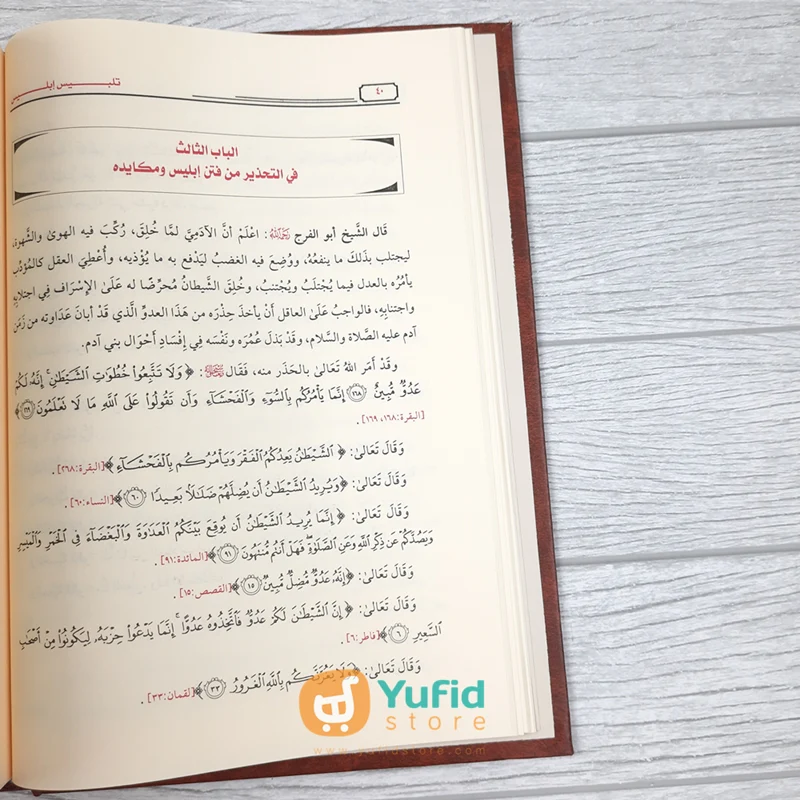 ٤٠
تلبيس إبليس
الباب الثالث
في التحذير من فتن إبليس ومكايده
قَال الشَّيخ أبو الفرج رَحِمَهُ اللهُ: اعْلَمْ أنَّ الآدَمِيَّ لمَّا خُلِقَ، رُكِّبَ فيه الهوىٰ والشَّهوة،
ليجتلب بذَلكَ ما ينفعُهُ، ووُضِعَ فيه الغضبُ ليَدْفع به ما يُؤْذيه، وأُعْطِيَ العقل كالمُؤدِّب
يأمُرُه بالعدل فيما يُجْتلَبُ ويُجْتنبُ، وخُلِقَ الشَّيطانُ مُحرِّضًا له عَلىٰ الإسْرَاف فِي اجتلابِهِ
واجتنابِهِ، فالواجبُ عَلَىٰ العاقل أَنْ يأخذَ حِذْرَه من هَذَا العدوِّ الَّذي قَدْ أبانَ عَدَاوتَه من زَمَنِ
آدم عليه الصَّلاة والسَّلام، وقَدْ بَذَل عُمُرَه ونَفْسَه فِي إفْسَادِ أَحْوَال بني آدم.
وقَدْ أَمَر اللهُ تَعَالىٰ بالحَذَر منه، فَقَال: ﴿ وَلَا تَتَّبِعُواْ خُطُوَٰتِ ٱلشَّيْطَٰنِ ۚ إِنَّهُۥ لَكُمْ
عَدُوٌّ مُّبِينٌ ١٦٨ إِنَّمَا يَأْمُرُكُم بِٱلسُّوٓءِ وَٱلْفَحْشَآءِ وَأَن تَقُولُواْ عَلَى ٱللَّهِ مَا لَا تَعْلَمُونَ ١٦٩﴾
[البقرة:١٦٨، ١٦٩].
وَقَالَ تَعَالَىٰ: ﴿ ٱلشَّيْطَٰنُ يَعِدُكُمُ ٱلْفَقْرَ وَيَأْمُرُكُم بِٱلْفَحْشَآءِ ﴾[البقرة:٢٦٨].
وَقَالَ تَعَالَىٰ: ﴿وَيُرِيدُ ٱلشَّيْطَٰنُ أَن يُضِلَّهُمْ ضَلَٰلًۢا بَعِيدًا ٦٠﴾[النساء:٦٠].
وَقَالَ تَعَالَىٰ: ﴿ إِنَّمَا يُرِيدُ ٱلشَّيْطَٰنُ أَن يُوقِعَ بَيْنَكُمُ ٱلْعَدَٰوَةَ وَٱلْبَغْضَآءَ فِي ٱلْخَمْرِ وَٱلْمَيْسِرِ
وَيَصُدَّكُمْ عَن ذِكْرِ ٱللَّهِ وَعَنِ ٱلصَّلَوٰةِ ۖ فَهَلْ أَنتُم مُّنتَهُونَ ٩١﴾[المائدة:٩١].
وَقَالَ تَعَالَىٰ: ﴿إِنَّهُۥ عَدُوٌّ مُّضِلٌّ مُّبِينٌ ١٥﴾[القصص:١٥].
وَقَالَ تَعَالَىٰ: ﴿ إِنَّ ٱلشَّيْطَٰنَ لَكُمْ عَدُوٌّ فَٱتَّخِذُوهُ عَدُوًّا ۚ إِنَّمَا يَدْعُواْ حِزْبَهُۥ لِيَكُونُواْ مِنْ أَصْحَٰبِ
ٱلسَّعِيرِ ٦﴾[فاطر:٦].
وَقَالَ تَعَالَىٰ: ﴿وَلَا يَغُرَّنَّكُم بِٱللَّهِ ٱلْغَرُورُ ٣٣﴾[لقمان:٣٣].
Yufid
store
www.yufidstore.com